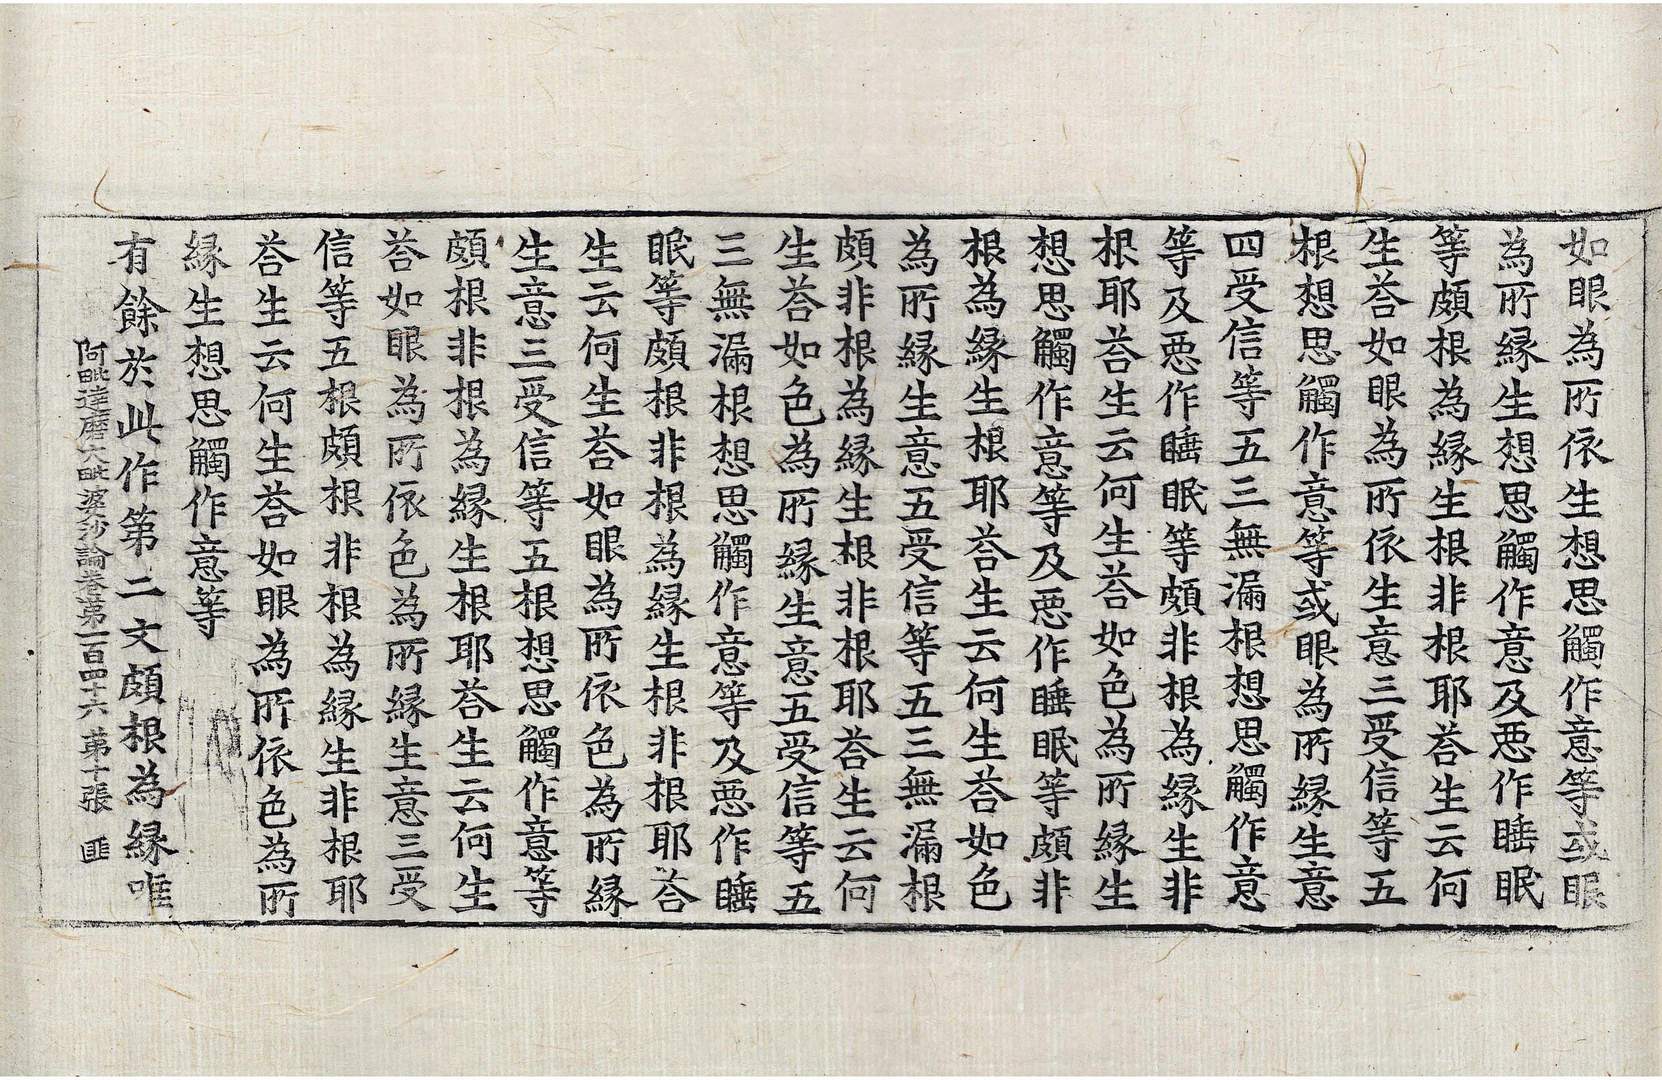 如眼為所依生想思觸作意等或眼
為所緣生想思觸作意及惡作睡眠
等頗根為緣生根非根耶荅生云何
生荅如眼為所依生意三受信等五
根想思觸作意等或眼為所緣生意
四受信等五三無漏根想思觸作意
等及惡作睡眠等頗非根為緣生非
根耶荅生云何生荅如色為所緣生
想思觸作意等及惡作睡眠等頗非
根為緣生根耶荅生云何生荅如色
為所緣生意五受信等五三無漏根
頗非根為緣生根非根耶荅生云何
生荅如色為所緣生意五受信等五
三無漏根想思觸作意等及惡作睡
眠等頗根非根為緣生根非根耶荅
生云何生荅如眼為所依色為所緣
生意三受信等五根想思觸作意等
頗根非根為緣生根耶荅生云何生
荅如眼為所依色為所緣生意三受
信等五根頗根非根為緣生非根耶
荅生云何生荅如眼為所依色為所
緣生想思觸作意等
有餘於此作第二文頗根為緣唯
阿毗達磨大毗婆沙論卷第一百四十六 第十張 匪